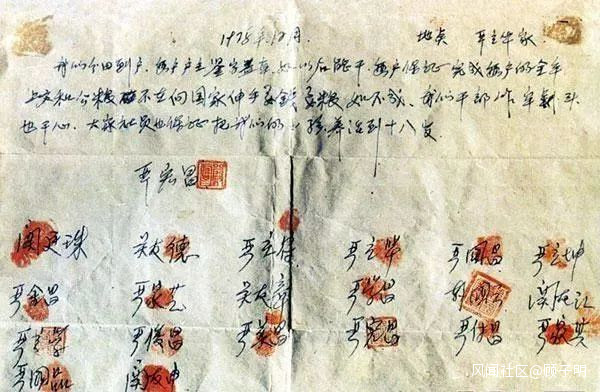 1978年12月 地点 严立华家
我们分田到户,每户户主签字盖章,如以后能干,每户保证完成每户的全年
上交和公粮 不在向国家伸手要钱要粮,如不成,我们干部作牢刹头
也干心,大家社员也保证把我们的小孩养活到十八岁.
严宏昌
关廷珠 关友德 严立符 严立华 严国昌 严立坤
严金昌 严家芝 关友章 严学昌 韩国云 关友江
严立学 严俊昌 严美昌 严宏昌 严付昌 严家其
严国品 关友申
风闻社区@顾子明